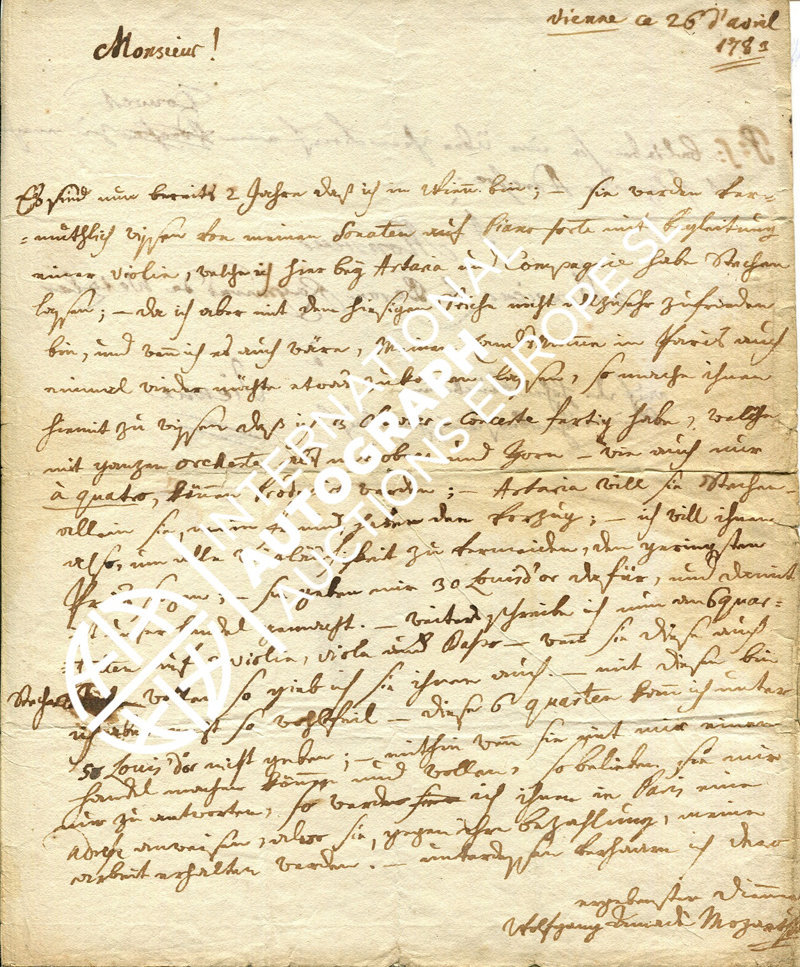 vienne ce 26 d'avril
1783
Monsieur!
Es sind nun bereits 2 Jahre daß ich in Wienn bin; – sie werden ver=
=muthlich wissen von meinen Sonaten auf Piano forte mit begleitung
einer violin, welche ich hier bey Artaria und Compagnie habe stechen
lassen; – da ich aber mit dem hiesigen Stiche nicht allzusehr zufrieden
bin, und wenn ich es auch wäre, in Paris auch
einmal wieder möchte etwas zukommen lassen, so mache ihnen
hiemit zu wissen daß ich 3 Clavier Concerte fertig habe, welche
mit ganzen orchestre, als mit oboen und Horn – wie auch nur
à quatro, können Producirt werden; – Artaria will sie stechen
allein sie, mein freund haben den vorzug; – ich will ihnen
also, um alle Weitläufigkeit zu vermeiden, den geringsten
Preis sagen; – sie geben mir 30 Louis d'or dafür, und damit
ist unser handel gemacht. – weiters schreibe ich nun an 6 quar=
=tetten auf 2 violin, viola und Basso – wenn sie diese auch
stechen wollen so gieb ich sie ihnen auch. – mit diesen bin
ich aber nicht so wohlfeil – diese 6 quarten kann ich unter
50 Louis d'or nicht geben; – mithin wenn sie mit mir einen
handel machen können und wollen, so belieben sie mir
nur zu antworten, so werde ich ihnen in Paris eine
adresse anweisen, alwo sie, gegen ihre bezahlung, meine
arbeit erhalten werden. – unterdessen verharre ich dero
ergebenster diener
Wolfgang Amadè Mozart
INTERNATIONAL
AUTOGRAPH
AUCTIONS EUROPE SL